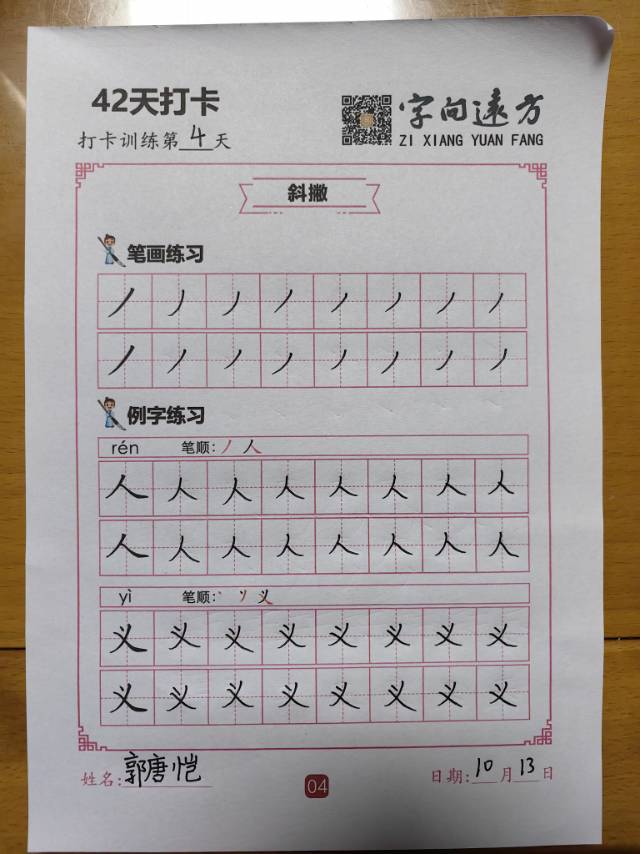 42天打卡
打卡训练第4天
字向远方
ZI XIANG YUAN FANG
斜撇
笔画练习
丿丿丿丿丿丿丿丿
丿丿丿丿丿丿丿丿
例字练习
rén 笔顺:丿人
人人人人人人人人
人人人人人人人人
yì 笔顺:丶丷义
义义义义义义义义
义义义义义义义义
姓名:郭唐恺
04
日期:10月13日